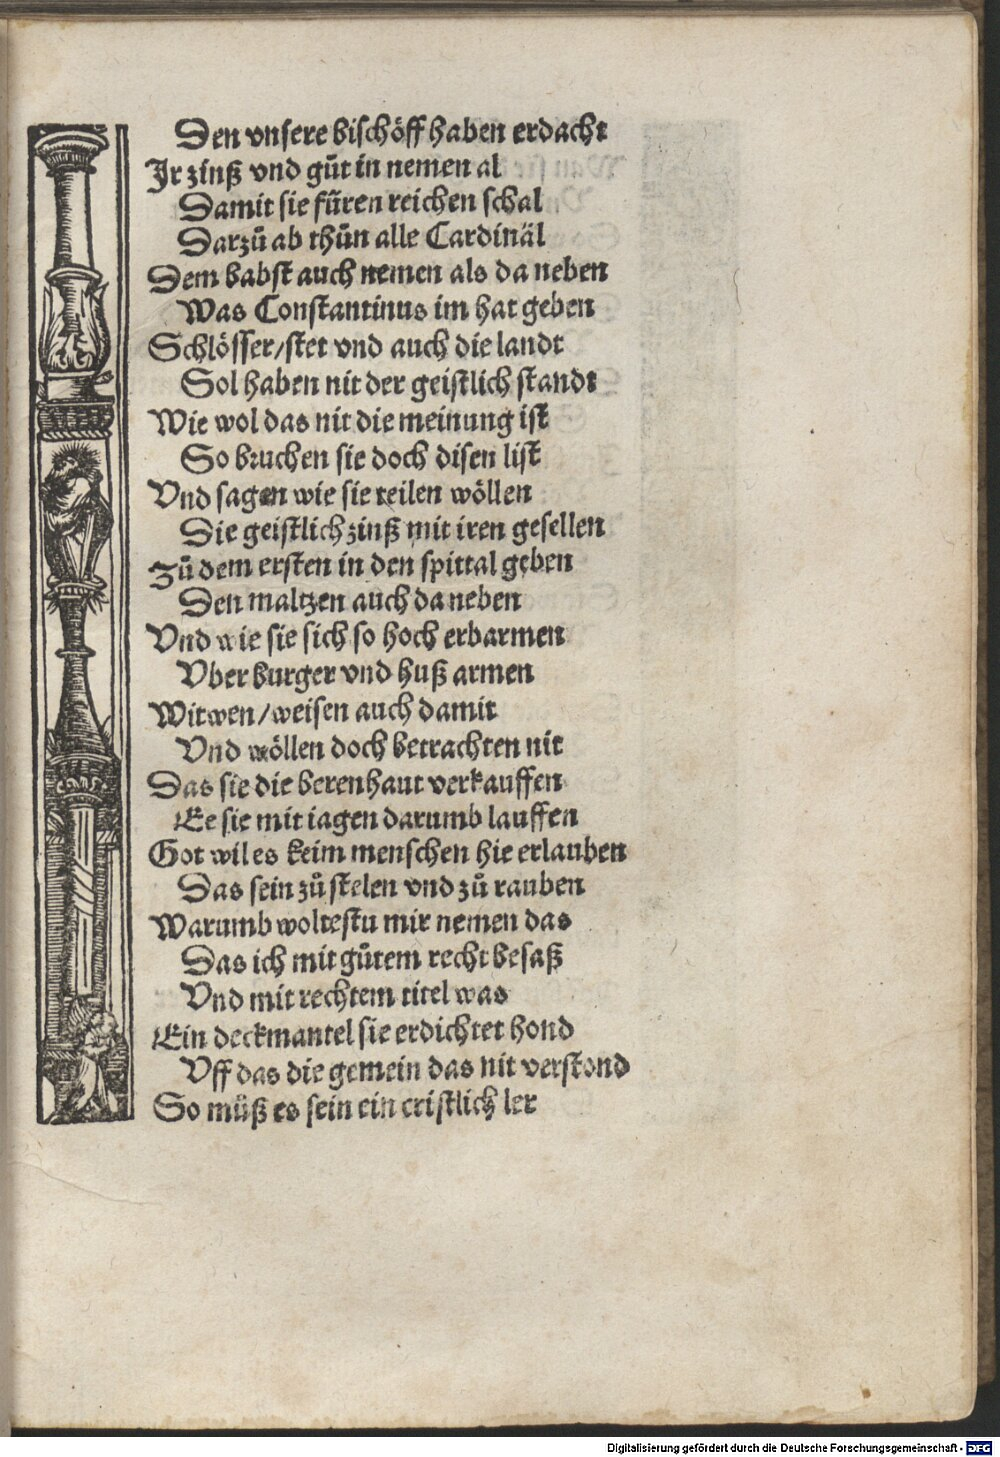 Den vnsere bischöff haben erdacht
Jr zinß vnd gůt in nemen al
Damit sie fůren reichen schal
Darzů ab thůn alle Cardinäl
Dem babst auch nemen als da neben
Was Constantinus im hat geben
Schlösser/stet vnd auch die landt
Sol haben nit der geistlich standt
Wie wol das nit die meinung ist
So bruchen sie doch disen list
Vnd sagen wie sie teilen wöllen
Die geistlich zinß mit iren gesellen
Zů dem ersten in den spittal geben
Den maltzen auch da neben
Vnd wie sie sich so hoch erbarmen
Vber burger vnd huß armen
Witwen/weisen auch damit
Vnd wöllen doch betrachten nit
Das sie die berenhaut verkauffen
Ee sie mit iagen darumb lauffen
Got wil es keim menschen hie erlauben
Das sein zů stelen vnd zů rauben
Warumb woltestu mir nemen das
Das ich mit gůtem recht besaß
Vnd mit rechtem titel was
Ein deckmantel sie erdichtet hond
Vff das die gemein das nit verstond
So můß es sein ein cristlich ler
Digitalisierung gefördert durch die Deutsche Forschungsgemeinschaft - DFG